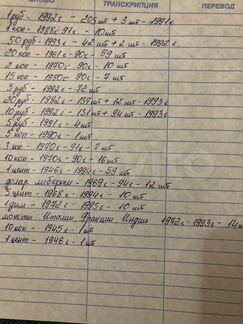 СЛОВО ТРАНСКРИПЦИЯ ПЕРЕВОД
1 руб - 1992г - 205 шт + 3 шт - 1991г
1 коп - 1988г 91г - 10 шт
50 руб - 1993г - 42 шт + 2 шт - 1992г.
20 коп - 1961г - 90г - 59 шт
2 коп - 1970г - 90г - 10 шт
15 коп - 1980г - 90г - 7 шт
5 руб - 1992г - 72 шт
20 руб - 1992г - 159 шт + 12 шт - 1993г
10 руб - 1992г - 151 шт + 94 шт - 1993г
5 руб - 1991г - 4 шт
5 коп - 1990г - 1 шт
3 коп - 1970г - 91г - 7 шт
10 коп - 1970г - 90г - 16 шт
1 цент - 1946г - 1994г - 59 шт
долар либерти - 1969г - 94г - 12 шт
5 цент - 1968г - 1994г - 10 шт
1 дим - 1972г - 1995г - 10 шт
монеты Италии, Франции, Индия 1972г - 1993г - 14 шт
10 коп - 1945г - 1 шт
1 цент - 1946г - 1 шт